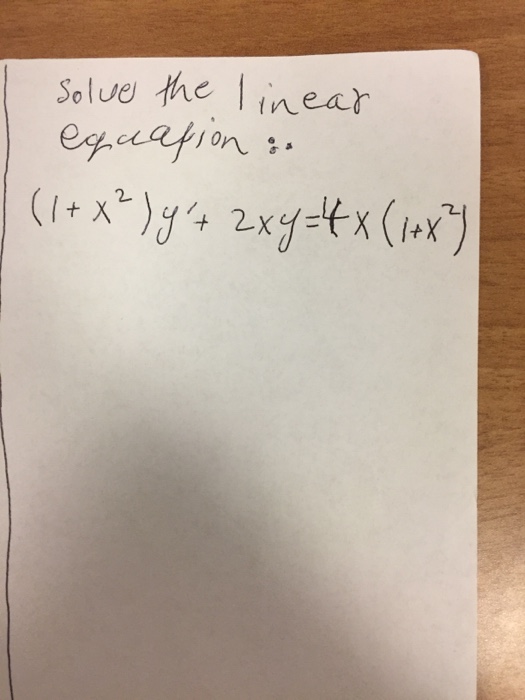 Solve the linear
equation :.
(1+x²)y'+ 2xy=4x(1+x²)